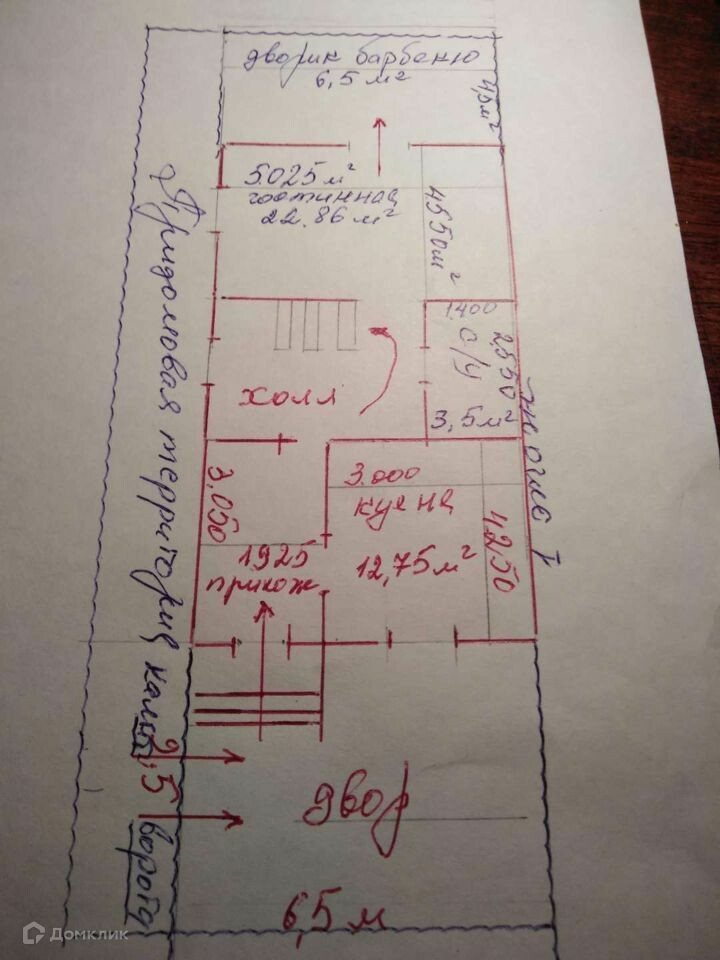 дворик барбекю
6,5 м²
4,5 м²
5.025 м²
гостинная
22.86 м²
4550 м²
1.400
с/у
2550
3,5 м²
холл
1 этаж
3.050
3.000
кухня
12,75 м²
4.250
1925
прихож
Придомовая территория
2,5
ворота
двор
6,5 м
Домклик